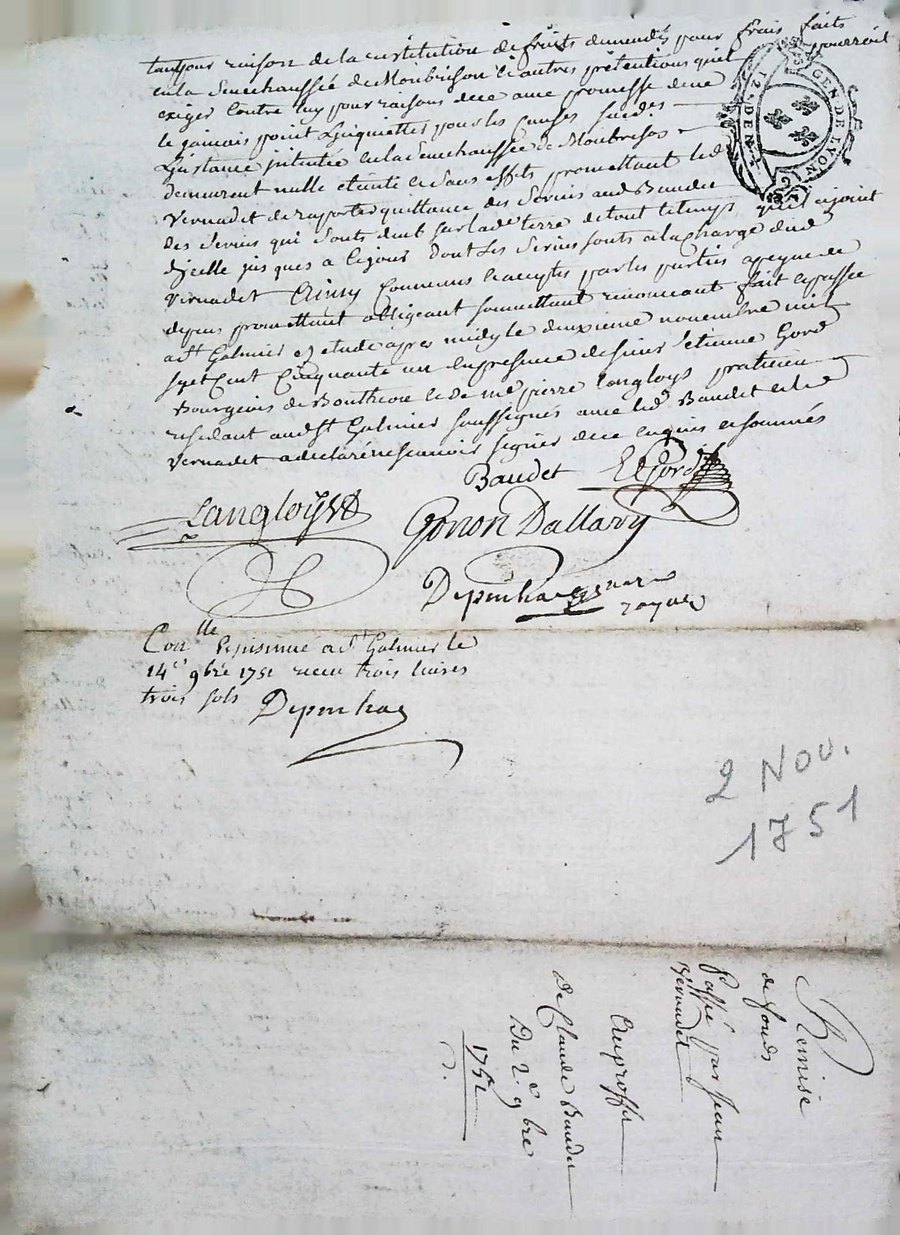 tant pour raison de la restitution de fruits demendés pour frais faits
en la Senechaussée de Monbrison & autres pretentions quil pourroit
exiger contre luy pour raisons de ce avec promesse de ne
le jamais point Linquietter pour les causes susdes
Linstance intentée en la Senechaussée de Monbrison
demeurent nulle éteinte & sans effets promettant led
Vernadet de raporter quittance des Servis aud Baudet
des servis qui sont deut sur lade terre de tout le temps
dicelle jusques a ce jour dont les servis sonts a la charge dud
Vernadet Ainsy convenu & accepté par les parties a peyne de
depens promettant obligeant soumettant renonceant fait & passé
a St Galmier & etude apres midy le deuxieme novembre mil
sept cent cinquante un en presence de sieur Etienne Gord
bourgeois de Bouthéon & de me pierre Langloys praticien
residant aud St Galmier soussignés avec led Baudet & led
Vernadet a declaré ne scavoir signer de ce enquis & sommés
GEN DE LYON
12 DEN
Baudet E Gord
Langloys
Gonon Dallary
Depinhac
royal
Conlle & insinué a St Galmier le
14e 9bre 1751 receu trois livres
trois sols Depinhac
2 Nov.
1751
Remise
de fonds
Passé par Jean
Vernadet
Au proffit
De Claude Baudet
Du 2e 9bre
1751